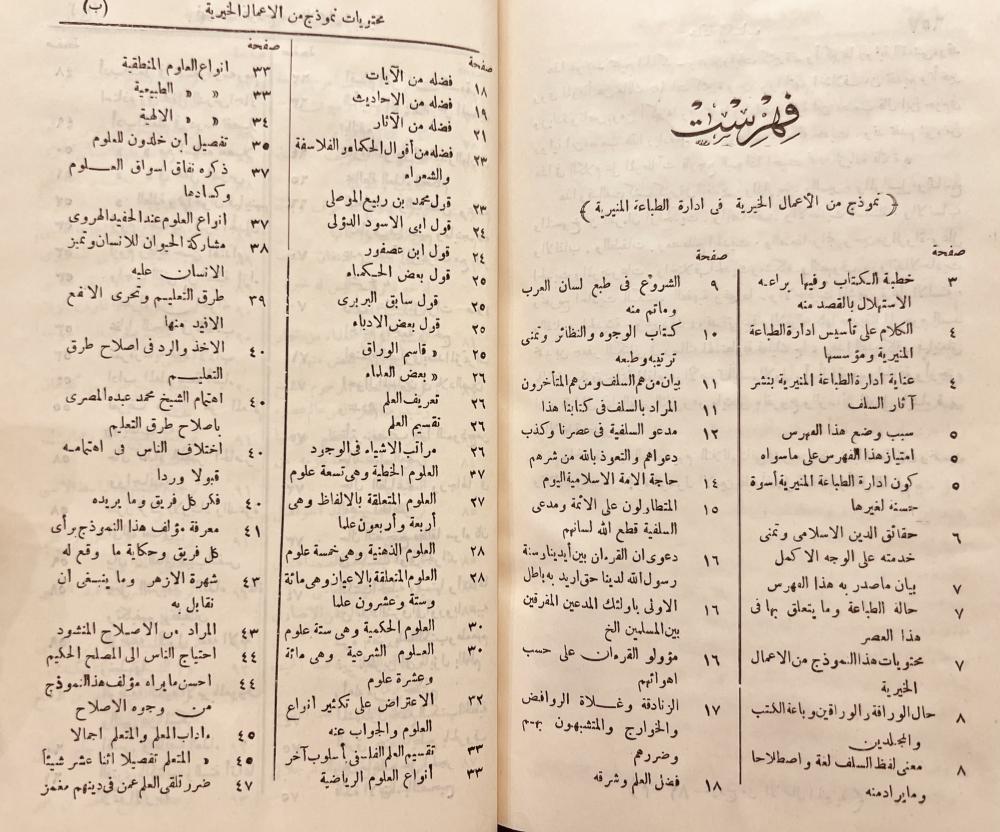 فهرست
﴿ نموذج من الأعمال الخيرية فى ادارة الطباعة المنيرية ﴾
صفحة
٣ خطبة الكتاب وفيها براعة
الاستهلال بالقصد منه
٤ الكلام على تأسيس ادارة الطباعة
المنيرية ومؤسسها
٤ عناية ادارة الطباعة المنيرية بنشر
آثار السلف
٥ سبب وضع هذا الفهرس
٥ امتياز هذا الفهرس على ماسواه
٥ كون ادارة الطباعة المنيرية أسوة
حسنة لغيرها
٦ حقائق الدين الاسلامى وتمنى
خدمته على الوجه الاكمل
٧ بيان ماصدر به هذا الفهرس
٧ حالة الطباعة وما يتعلق بها فى
هذا العصر
٧ محتويات هذا النموذج من الاعمال
الخيرية
٨ حال الوراقة والوراقين وباعة الكتب
والمجلدين
٨ معنى لفظ السلف لغة واصطلاحا
وما يراد منه
صفحة
٩ الشروع فى طبع لسان العرب
وماتم منه
١٠ كتاب الوجوه والنظائر وتمنى
ترتيبه وطبعه
١١ بيان من هم السلف ومن هم المتأخرون
١١ المراد بالسلف فى كتابنا هذا
١٢ مدعو السلفية فى عصرنا وكذب
دعواهم والتعوذ بالله من شرهم
١٤ حاجة الامة الاسلامية اليوم
١٥ المتطاولون على الائمة ومدعى
السلفية قطع الله لسانهم
١٦ دعوى ان القرءان بين أيدينا وسنة
رسول الله لدينا حق اريد به باطل
١٦ الاولى باولئك المدعين المفرقين
بين المسلمين الخ
١٦ مؤولو القرءان على حسب
اهوائهم
١٧ الزنادقة وغلاة الروافض
والخوارج والمتشبهون بهم
وضررهم
١٨ فضل العلم وشرفه
محتويات نموذج من الاعمال الخيرية (ب)
صفحة
١٨ فضله من الآيات
١٩ فضله من الاحاديث
٢١ فضله من الآثار
٢٣ فضله من أقوال الحكماء والفلاسفة
والشعراء
٢٣ قول محمد بن ربيع الموصلى
٢٤ قول ابى الاسود الدؤلى
٢٤ قول ابن عصفور
٢٥ قول بعض الحكماء
٢٥ قول سابق البربرى
٢٥ قول بعض الادباء
٢٥ « قاسم الوراق
٢٦ « بعض العلماء
٢٦ تعريف العلم
٢٦ تقسيم العلم
٢٦ مراتب الاشياء فى الوجود
٣٧ العلوم الخطية وهى تسعة علوم
٢٧ العلوم المتعلقة بالالفاظ وهى
أربعة وأربعون علما
٢٨ العلوم الذهنية وهى خمسة علوم
٢٨ العلوم المتعلقة بالاعيان وهى مائة
وستة وعشرون علما
٣٠ العلوم الحكمية وهى ستة علوم
٣٠ العلوم الشرعية وهى مائة
وعشرة علوم
٣٢ الاعتراض على تكثير انواع
العلوم والجواب عنه
٣٣ تقسيم العلم الفلسفى أسلوب آخر
٣٣ أنواع العلوم الرياضية
صفحة
٣٣ انواع العلوم المنطقية
٣٣ « « الطبيعية
٣٤ « « الالهية
٣٥ تفصيل ابن خلدون للعلوم
٣٧ ذكره نفاق اسواق العلوم
وكسادها
٣٧ انواع العلوم عند الحفيد الهروى
٣٨ مشاركة الحيوان للانسان وتميز
الانسان عليه
٣٩ طرق التعليم وتحرى الانفع
الافيد منها
٤٠ الاخذ والرد فى اصلاح طرق
التعليم
٤٠ اهتمام الشيخ محمد عبده المصرى
باصلاح طرق التعليم
٤٠ اختلاف الناس فى اهتمامه
قبولا وردا
٤٠ فكر كل فريق وما يريده
٤١ معرفة مؤلف هذا النموذج برأى
كل فريق وحكاية ما وقع له
٤٣ شهرة الازهر وما ينبغى ان
نقابل به
٤٣ المراد من الاصلاح المنشود
٤٤ احتياج الناس الى المصلح الحكيم
٤٤ احسن ما يراه مؤلف هذا النموذج
من وجوه الاصلاح
٤٥ ءاداب المعلم والمتعلم اجمالا
٤٥ « المتعلم تفصيلا اثنا عشر شيئا
٤٧ ضرر تلقى العلم عمن فى دينهم مغمز